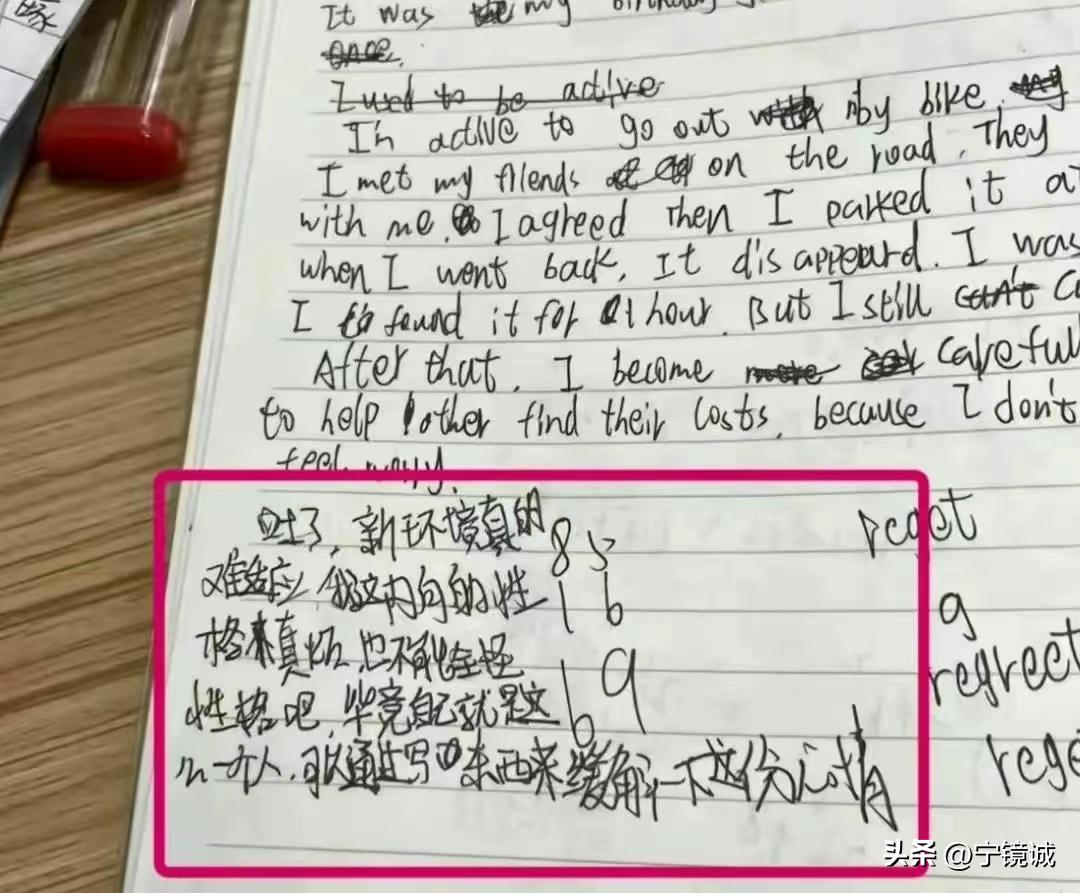 It was my
once.
I used to be active
I'm active to go out by bike.
I met my friends on the road. They
with me. I agreed Then I parked it at
when I went back, It disappeard. I was
I found it for 1 hour. But I still can't
After that, I become more careful
to help other find their losts, because I don't
feel worry.
吐了，新环境真的
难适应，我这内向的性
格来真烦，也不能全怪
性格吧，毕竟自己就是这
么一个人，可以通过写东西来缓解一下这份心情
85
16
19
6
reget
g
regrect
rege
头条 @宁镜诚